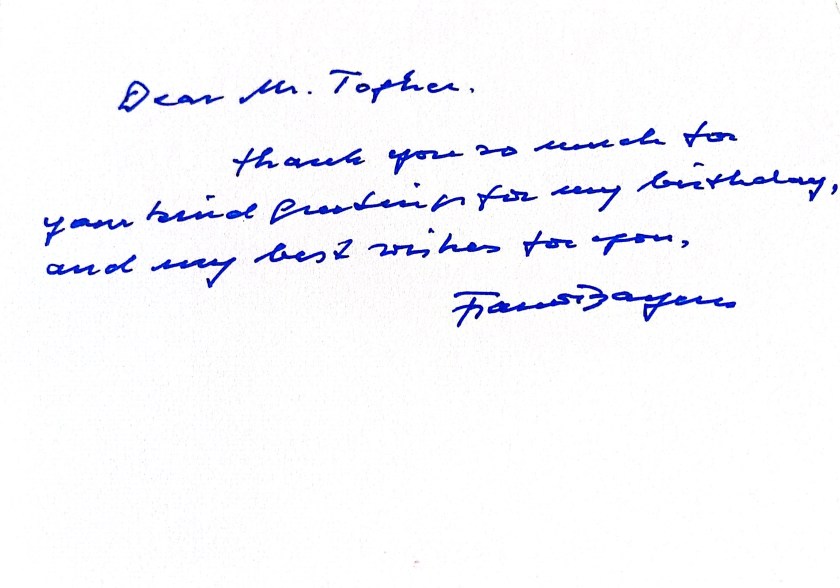 Dear Mr. Topher.
thank you so much for
your kind greetings for my birthday,
and my best wishes for you,